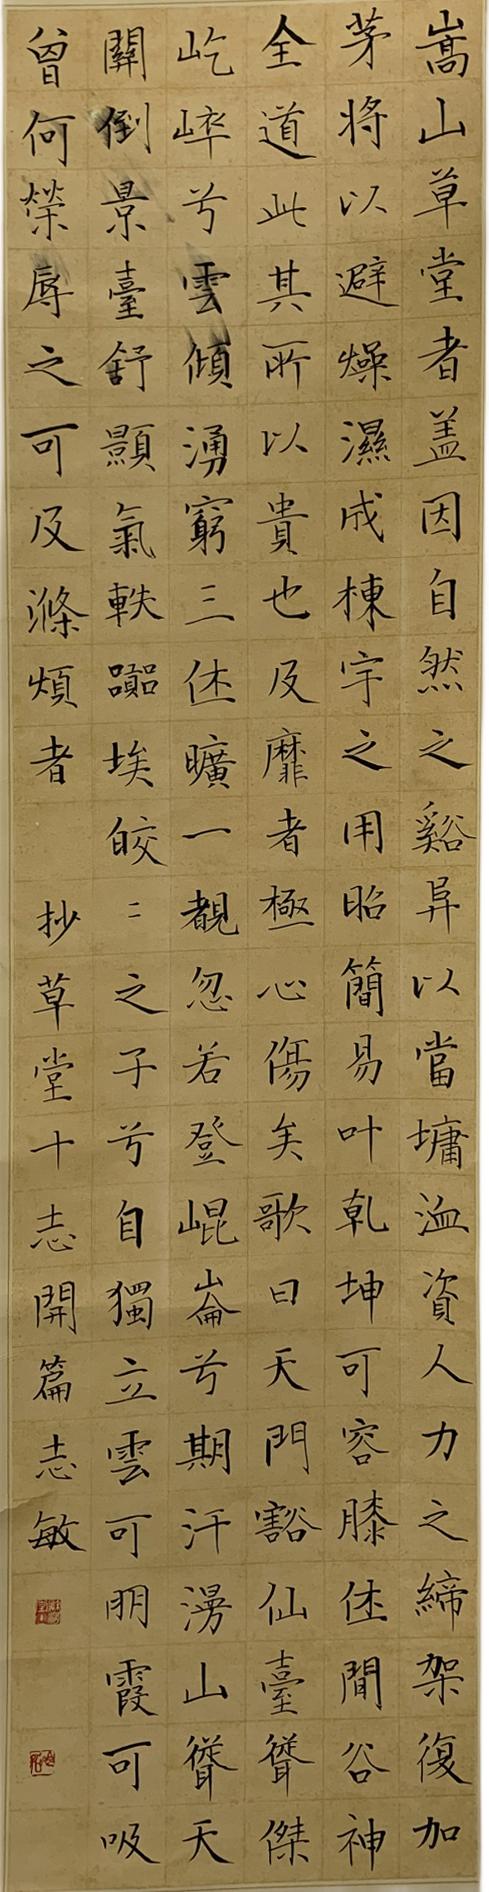 嵩山草堂者盖因自然之谿𠔌以當墉洫資人力之締架復加
茅將以避燥濕成棟宇之用昭簡易叶乾坤可容膝休閒谷神
全道此其所以貴也及靡者極心傷矣歌曰天門豁仙臺聳傑
屹崒兮雲傾湧窮三休曠一覩忽若登崐崙兮期汗漫山聳天
關倒景臺舒顥氣軼囂埃皎〻之子兮自獨立雲可朋霞可吸
曾何榮辱之可及滌煩者 抄草堂十志開篇志敏